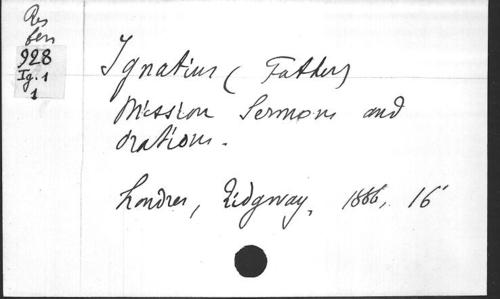 Res
ben
928
Ig. 1
1
Ignatius (Father)
Mission Sermons and
Orations.
Londres, Ridgway, 1886, 16°